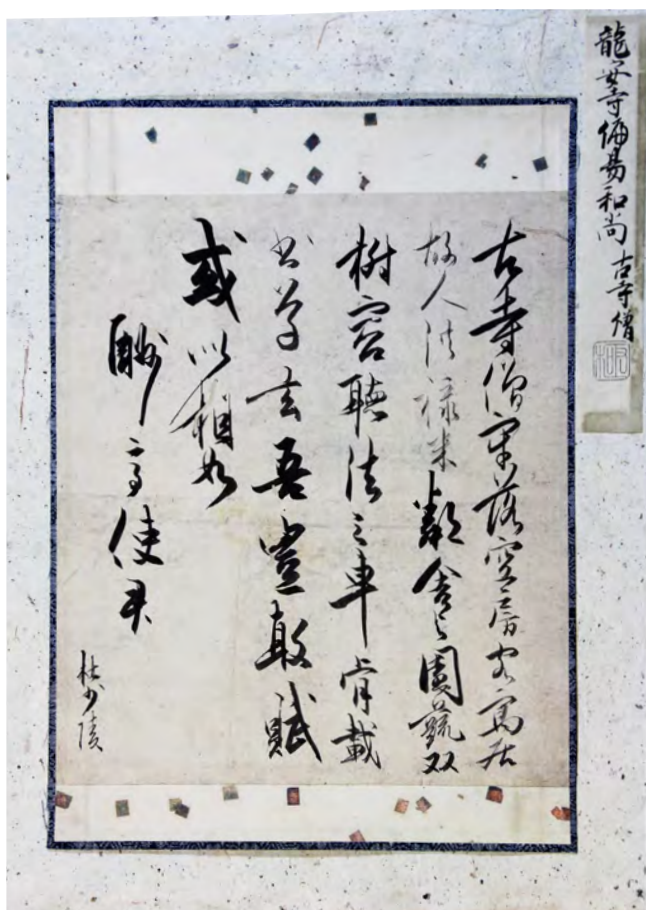 龍安寺偏易和尚 古寺僧
古寺僧牢落空房客寓居
故人供禄米鄰舎与園蔬双
樹容聴法三車肯載
書草玄吾豈敢賦
或似相如
酬高使君
杜少陵